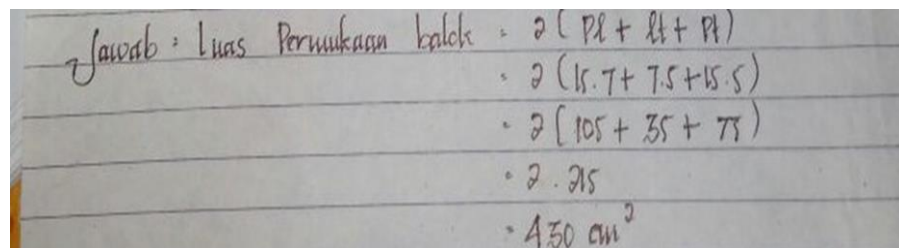 Jawab : Luas Permukaan balok = 2 ( Pl + lt + Pt )
= 2 ( 15.7 + 7.5 + 15.5 )
= 2 ( 105 + 35 + 75 )
= 2 . 215
= 430 cm²